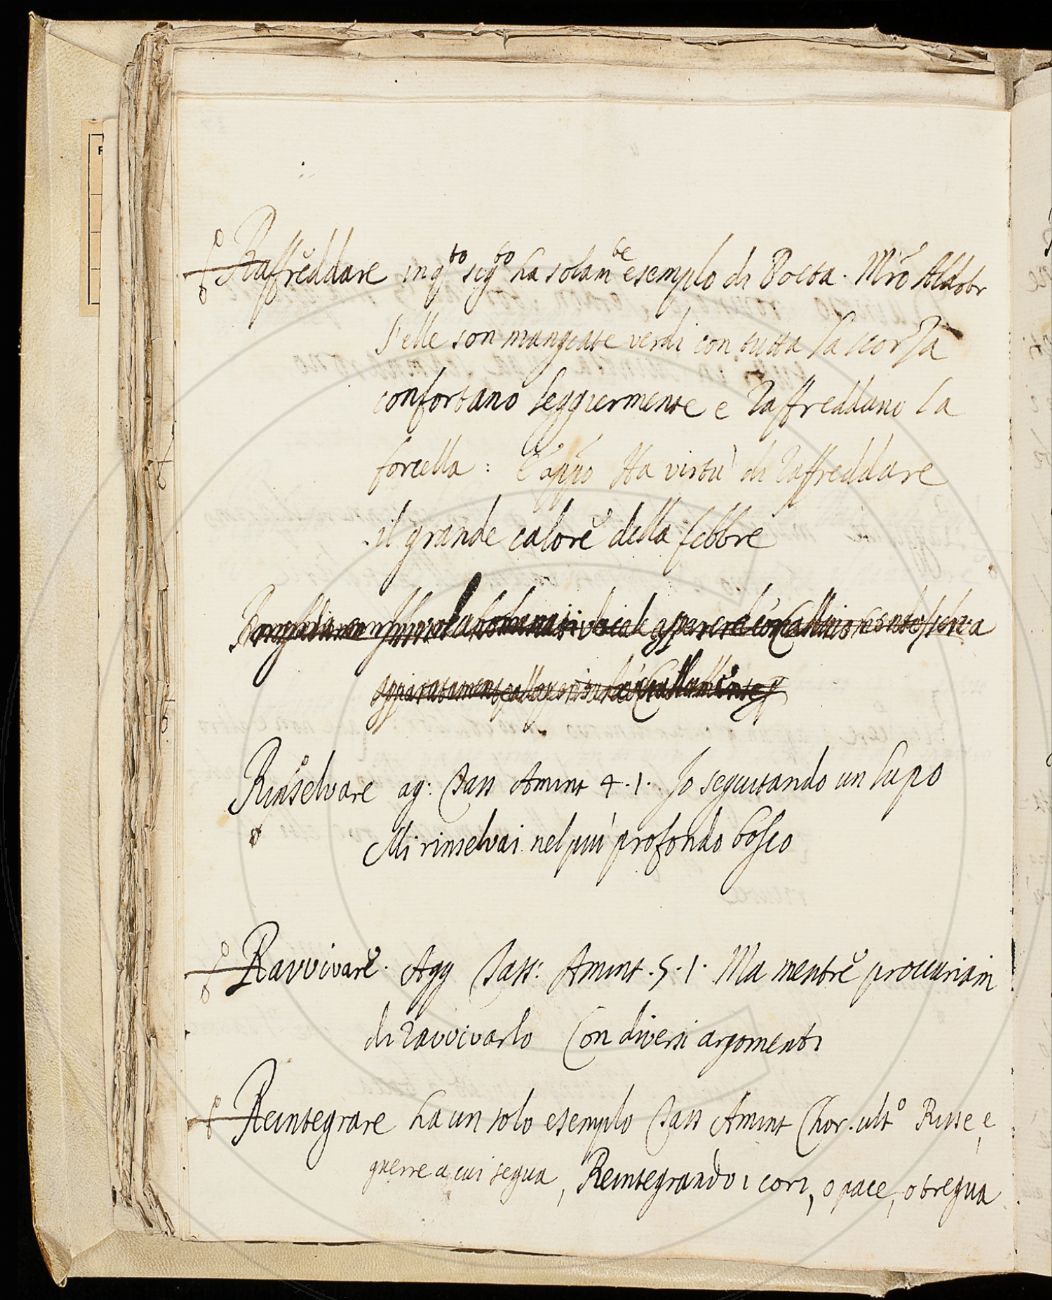 Raffreddare in q.to sig.to ha solam.te esempio di Bocca. M.ro Aldobr
S'elle son mangiate verdi con tutta la scorza
confortano leggiermente e raffreddano la
forcella: E app.o Ha virtù di raffreddare
il grande calore della febbre
Rinselvare ag: Tass Amint 4.1. Io seguitando un lupo
Mi rinselvai nel più profondo bosco
Ravvivare. Agg Tass: Amint. 5.1. Ma mentre procuriam
di ravvivarlo Con diversi argomenti
Reintegrare ha un solo esempio Tass Amint Chor. ult.o Risse, e
guerre a cui segua, Reintegrando i cori, o pace, o tregua